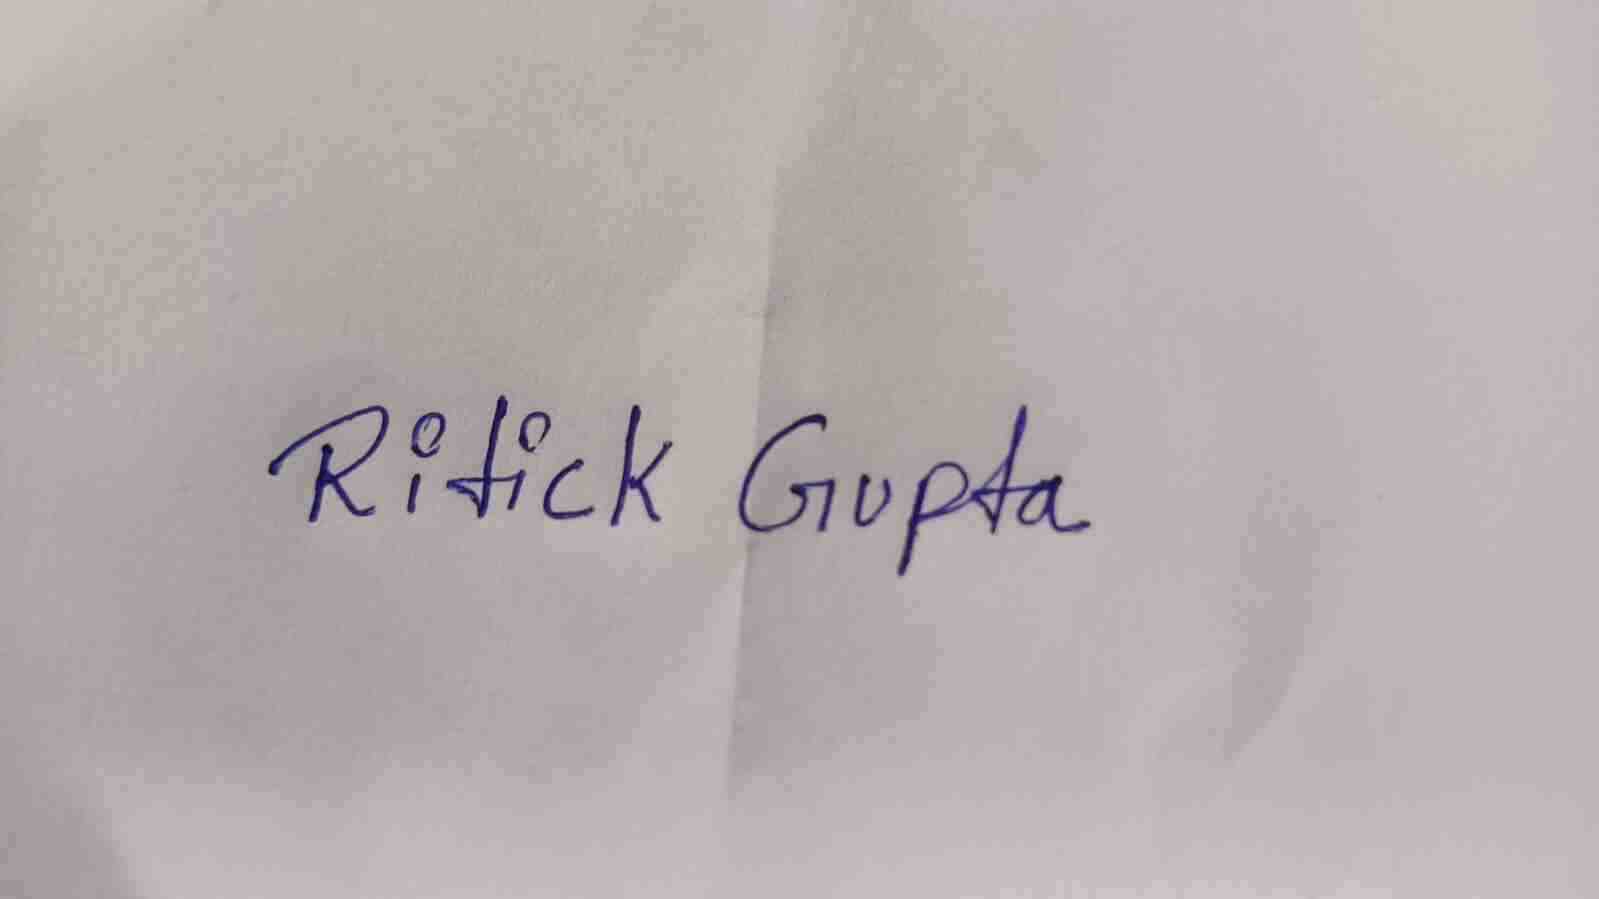 Ritick Gupta